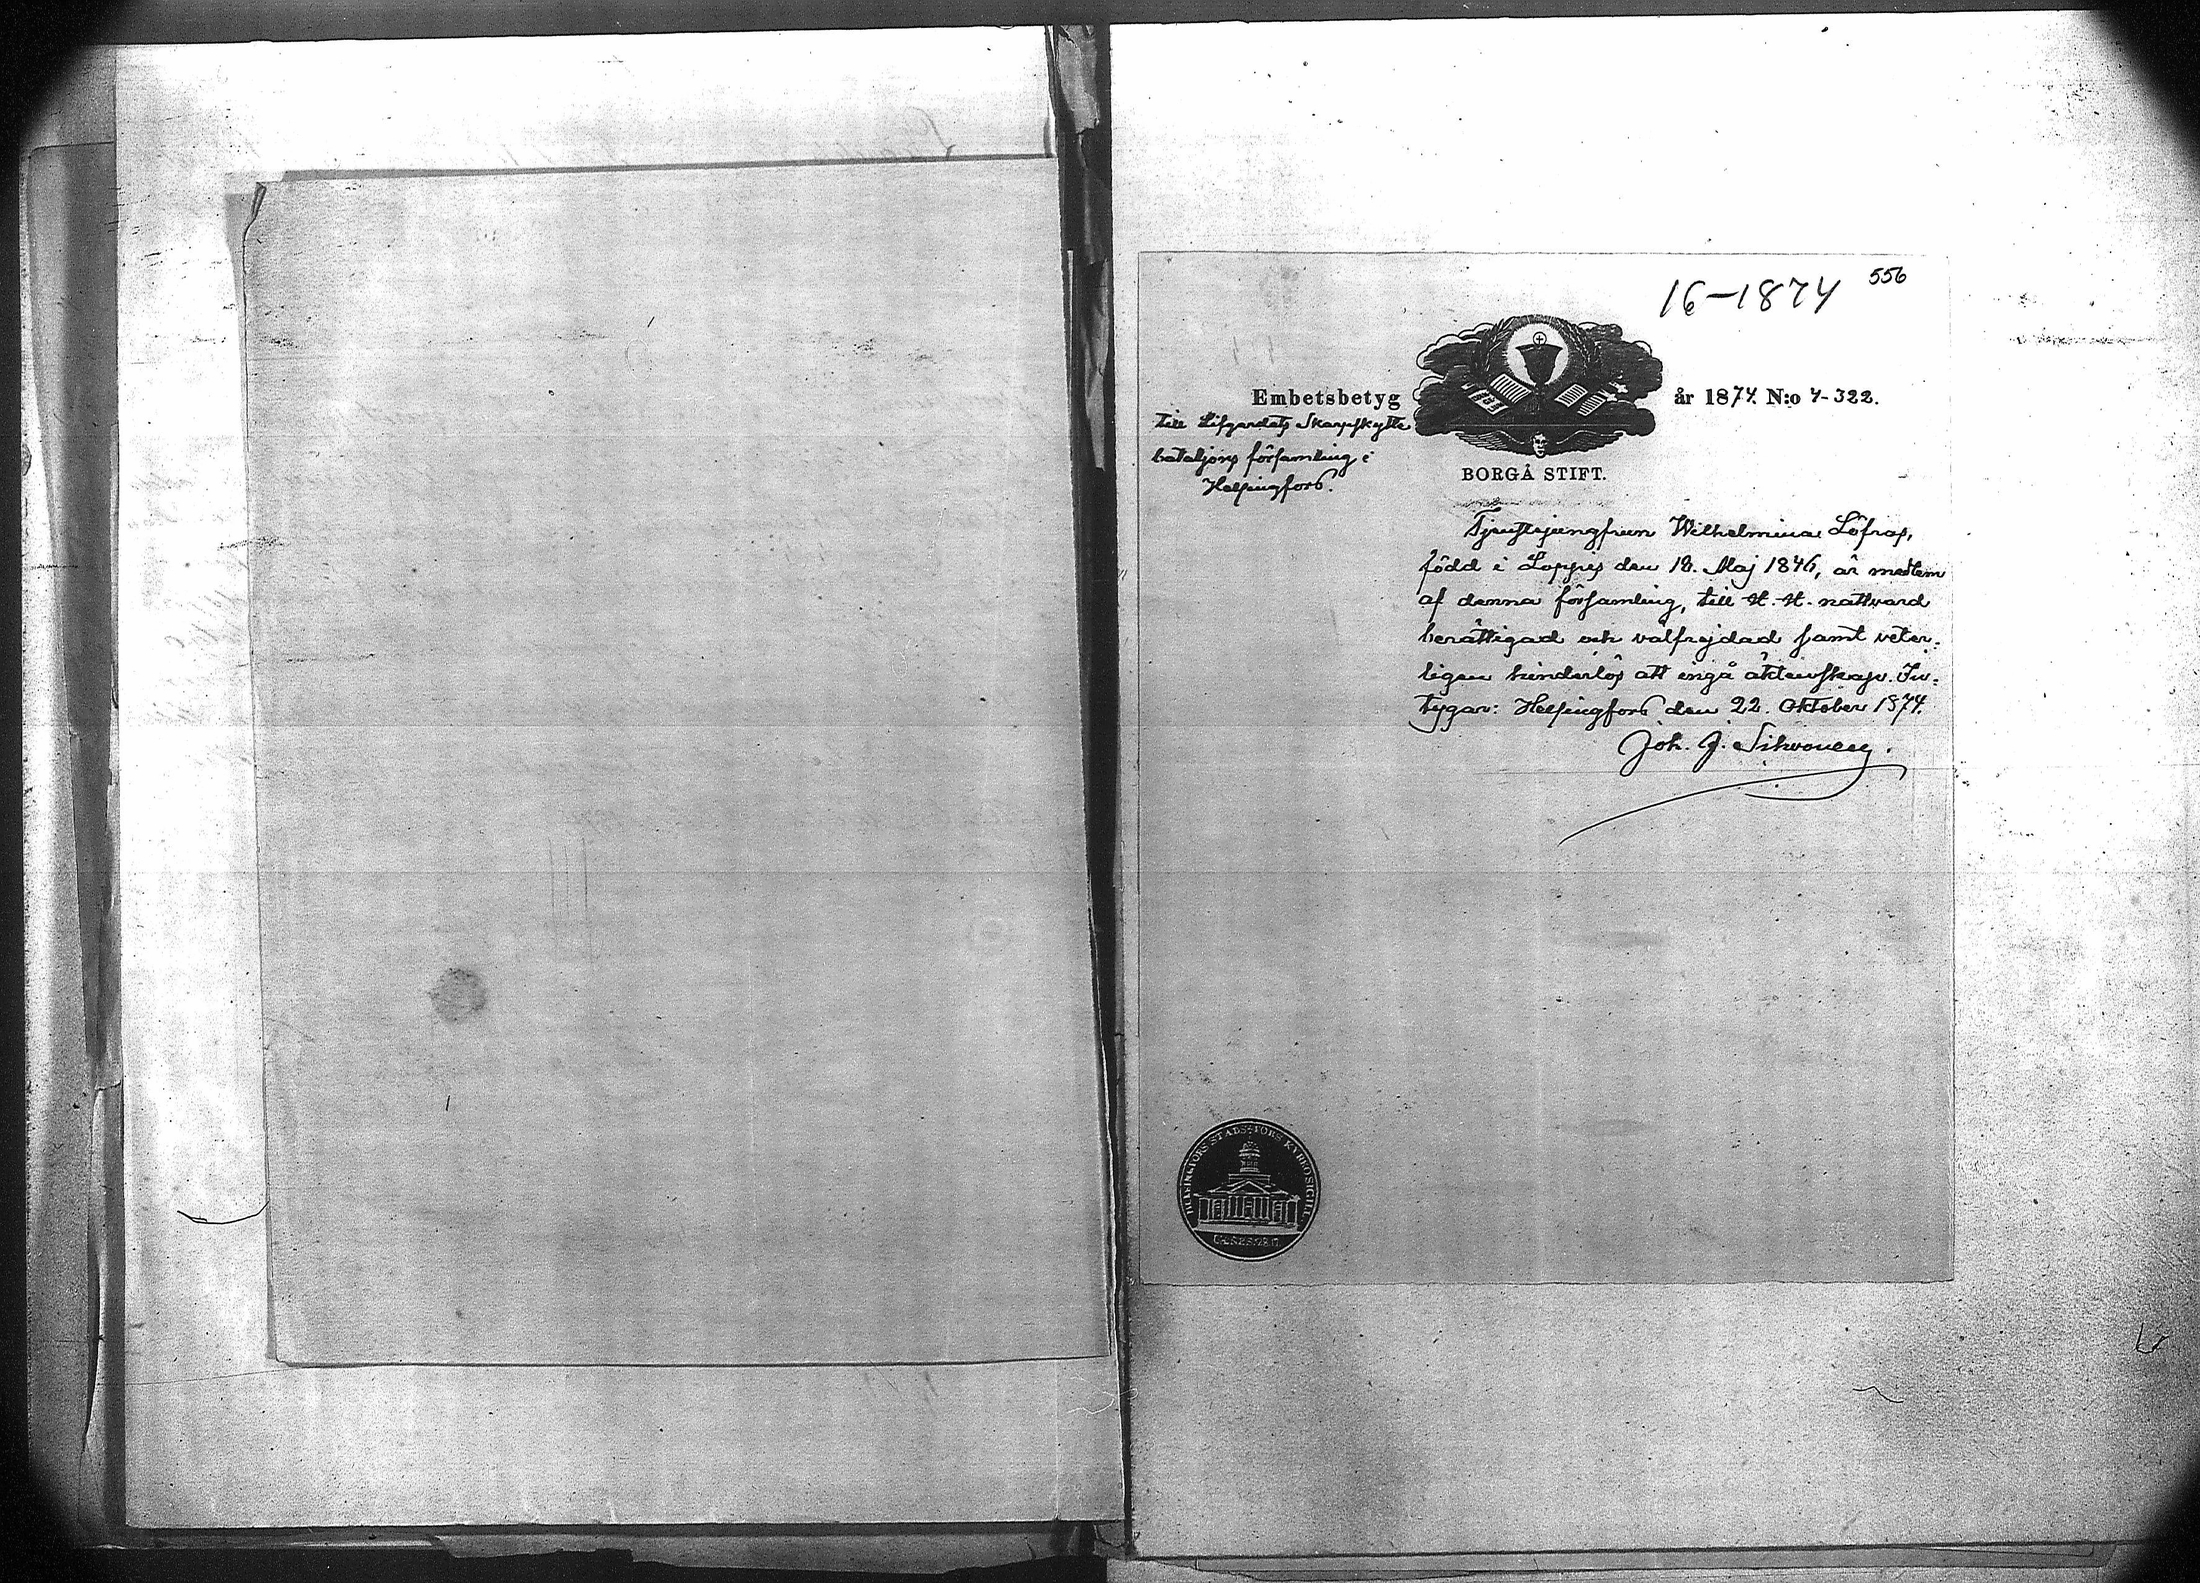 556
16-1874
Embetsbetyg år 1874. N:o 4-322.
till Lifgardets Skarpskytte
bataljons församling i
Helsingfors.
BORGÅ STIFT.
Tjenstejungfrun Wilhelmina Löfros,
född i Loppis den 18. Maj 1846, är medlem
af denna församling, till H. H. nattvard
berättigad och välfrejdad samt veter-
ligen hinderlös att ingå äktenskap. In-
tygar: Helsingfors den 22. Oktober 1874.
Joh. J. Sihvonen.
HELSINGFORS STADS KYRKOSIGILL